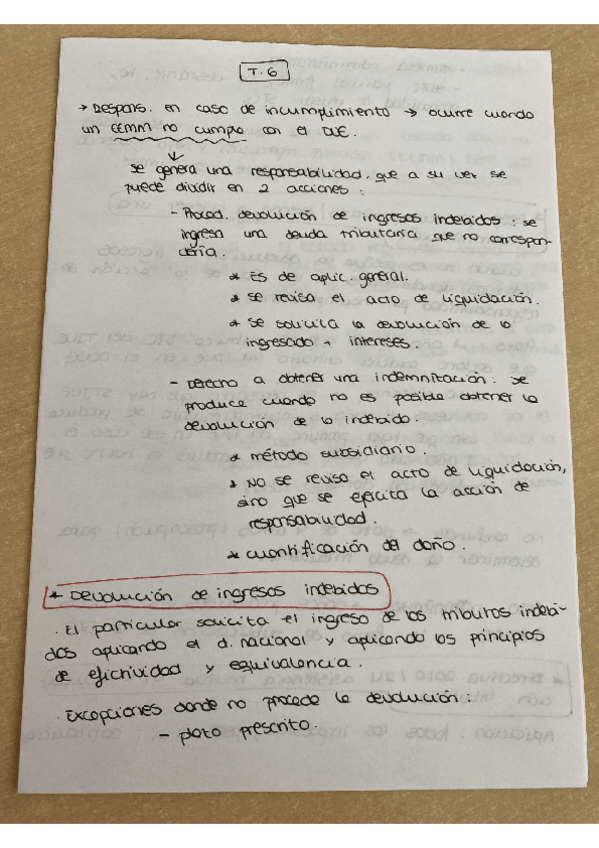 T.6
→ Respons. en caso de incumplimiento → ocurre cuando
un EEMM no cumple con el DUE.
se genera una responsabilidad, que a su vez se
puede dividir en 2 acciones:
- Proced. devolución de ingresos indebidos: se
ingresa una deuda tributaria que no correspon-
dería.
* Es de aplic. general.
* se revisa el acto de liquidación.
* se solicita la devolución de lo
ingresado + intereses.
- Derecho a obtener una indemnización: se
produce cuando no es posible obtener la
devolución de lo indebido.
* método subsidiario.
* NO se revisa el acto de liquidación,
sino que se ejercita la acción de
responsabilidad.
* cuantificación del daño.
* Devolución de ingresos indebidos
· El particular solicita el ingreso de los tributos indebi-
dos aplicando el d. nacional y aplicando los principios
de efectividad y equivalencia.
· Excepciones donde no procede la devolución:
- plazo prescrito.